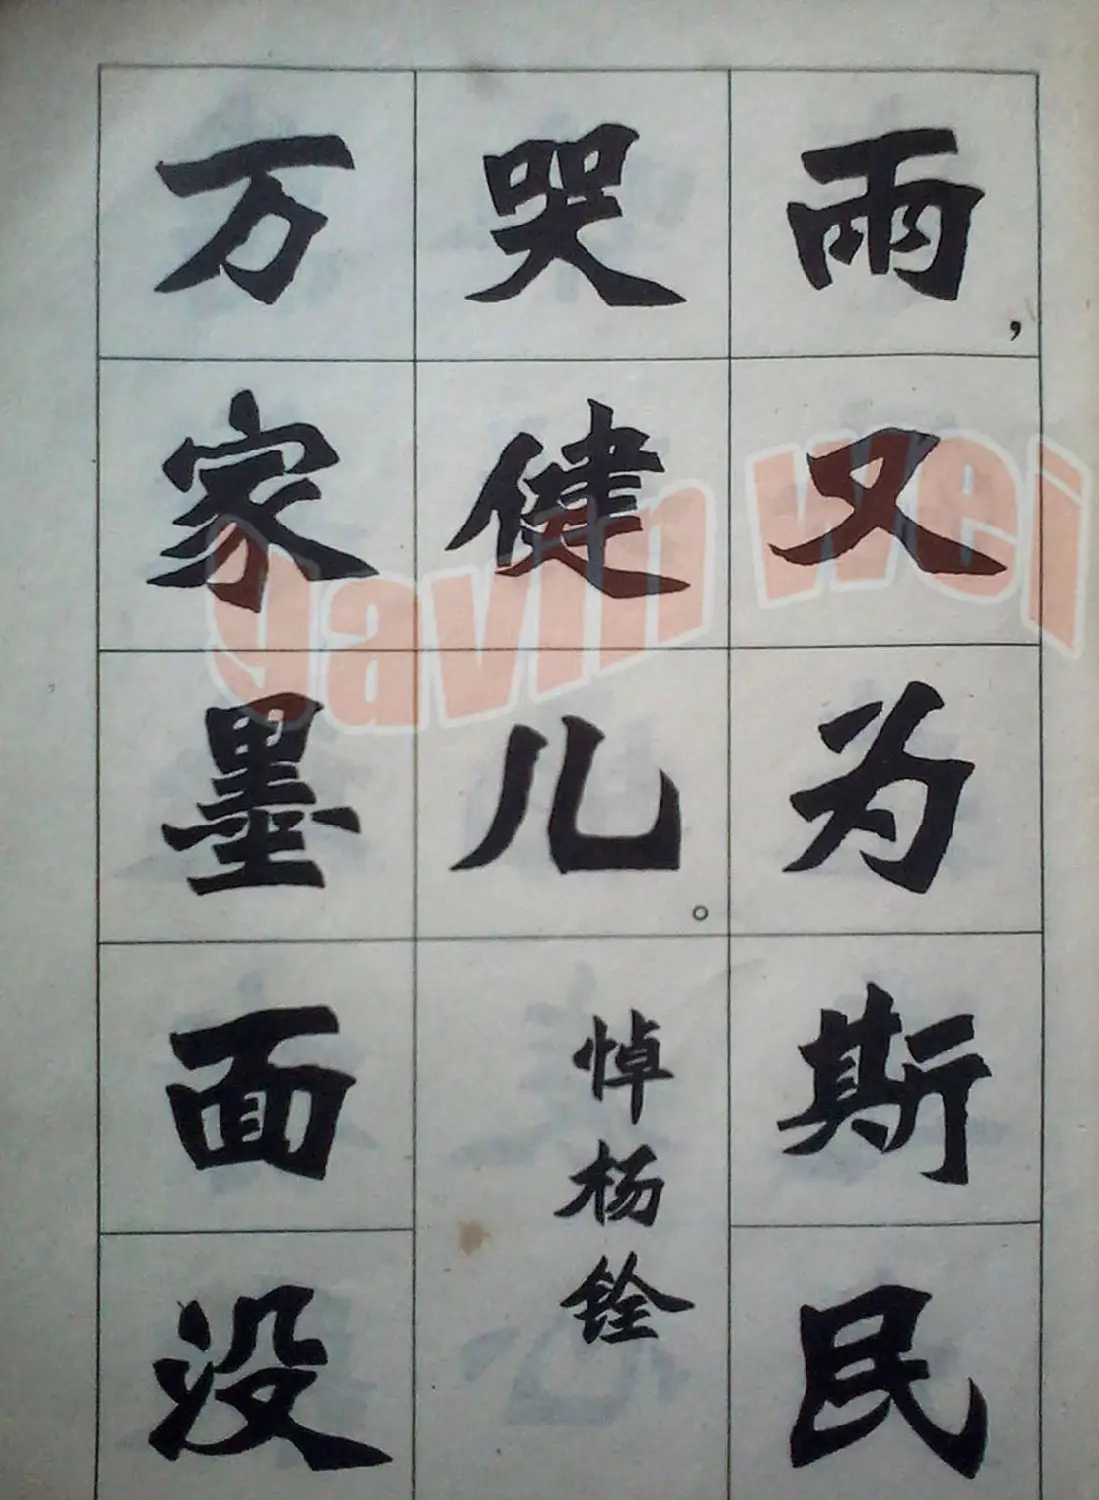 雨，又为斯民
哭健儿。
悼杨铨
万家墨面没
gavin wei